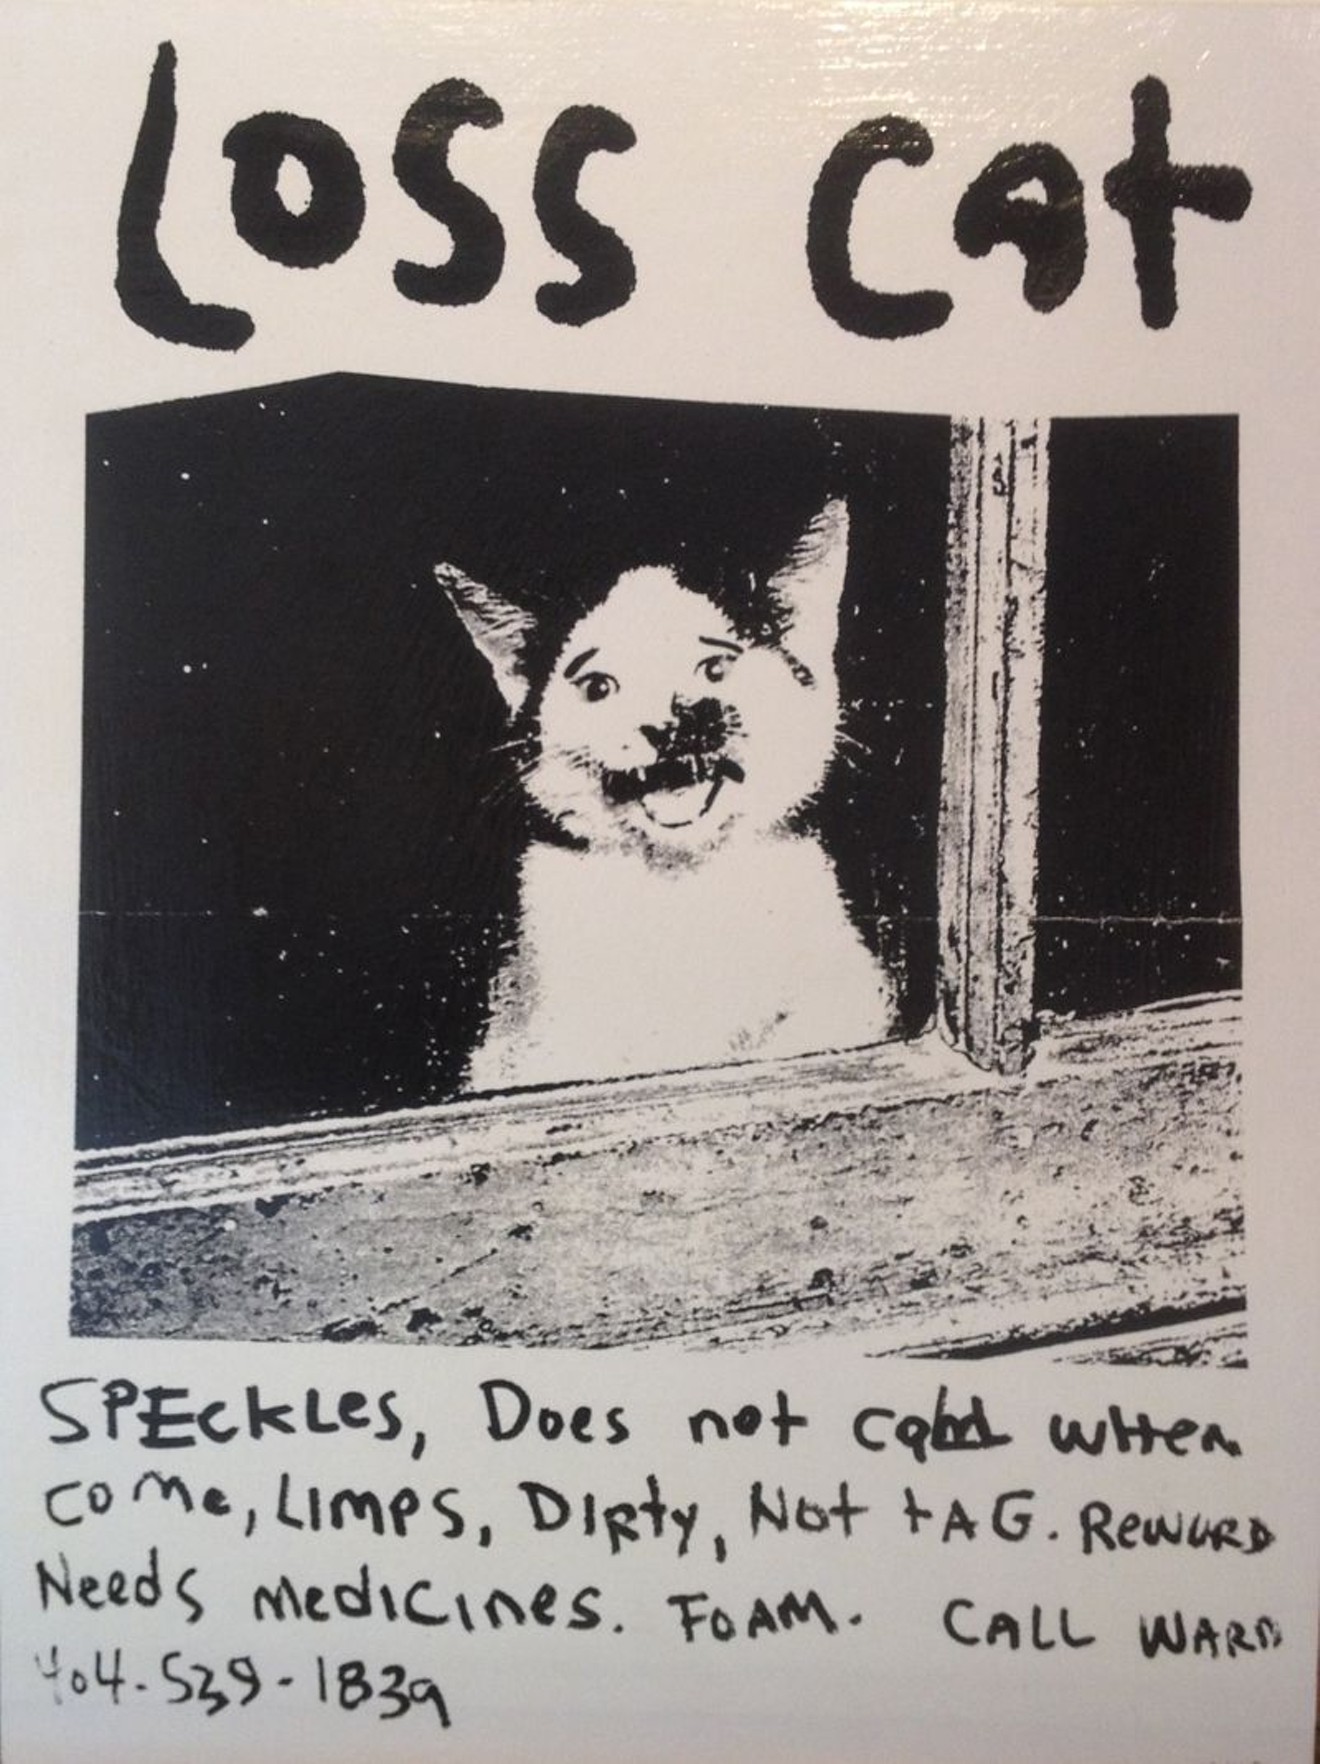 Loss cat
SPEckLes, Does not when
come, LImps, DIRty, Not tAG. RewURD
Needs medicines. FoAM. CALL WARD
404-539-1839